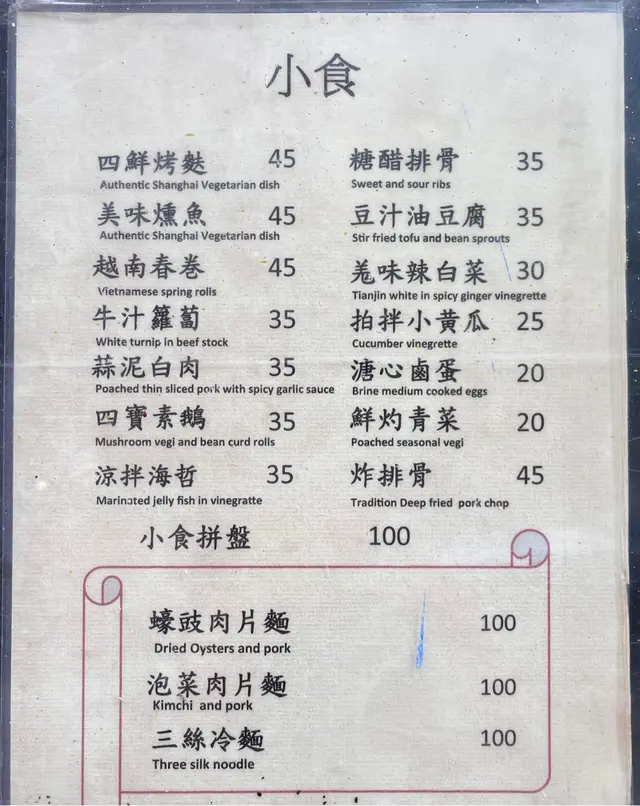 小食
四鮮烤麩 45
Authentic Shanghai Vegetarian dish
美味燻魚 45
Authentic Shanghai Vegetarian dish
越南春卷 45
Vietnamese spring rolls
牛汁籮蔔 35
White turnip in beef stock
蒜泥白肉 35
Poached thin sliced pork with spicy garlic sauce
四寶素鵝 35
Mushroom vegi and bean curd rolls
涼拌海哲 35
Marinated jelly fish in vinegratte
糖醋排骨 35
Sweet and sour ribs
豆汁油豆腐 35
Stir fried tofu and bean sprouts
羗味辣白菜 30
Tianjin white in spicy ginger vinegrette
拍拌小黄瓜 25
Cucumber vinegrette
溏心鹵蛋 20
Brine medium cooked eggs
鮮灼青菜 20
Poached seasonal vegi
炸排骨 45
Tradition Deep fried pork chop
小食拼盤 100
蠔豉肉片麵 100
Dried Oysters and pork
泡菜肉片麵 100
Kimchi and pork
三絲冷麵 100
Three silk noodle